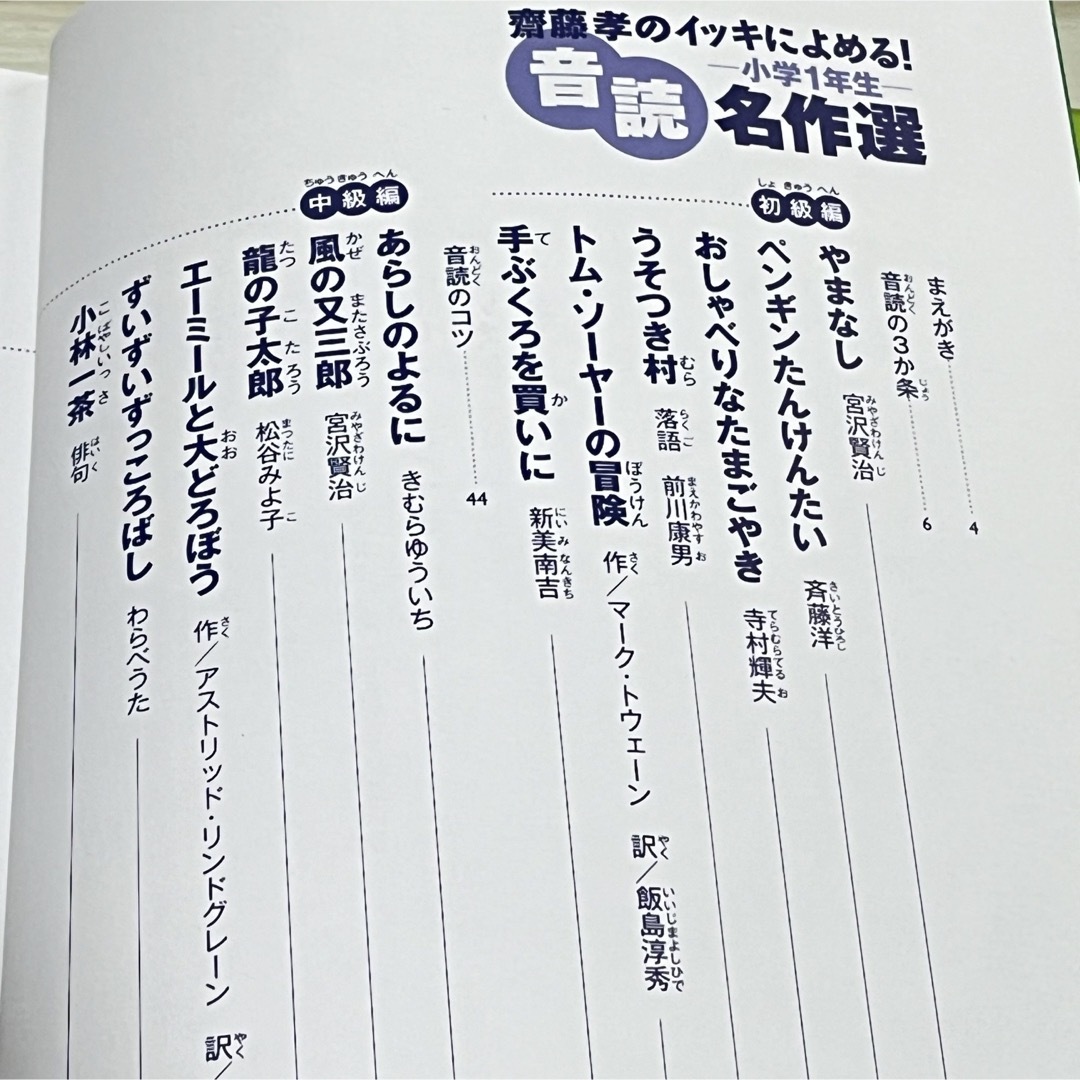 齋藤孝のイッキによめる!
音読
―小学1年生―
名作選
まえがき 4
音読の3か条 6
初級編
やまなし 宮沢賢治
ペンギンたんけんたい 斉藤洋
おしゃべりなたまごやき 寺村輝夫
うそつき村 落語 前川康男
トム・ソーヤーの冒険 作/マーク・トウェーン 訳/飯島淳秀
手ぶくろを買いに 新美南吉
音読のコツ 44
中級編
あらしのよるに きむらゆういち
風の又三郎 宮沢賢治
龍の子太郎 松谷みよ子
エーミールと大どろぼう 作/アストリッド・リンドグレーン 訳/
ずいずいずっころばし わらべうた
小林一茶 俳句